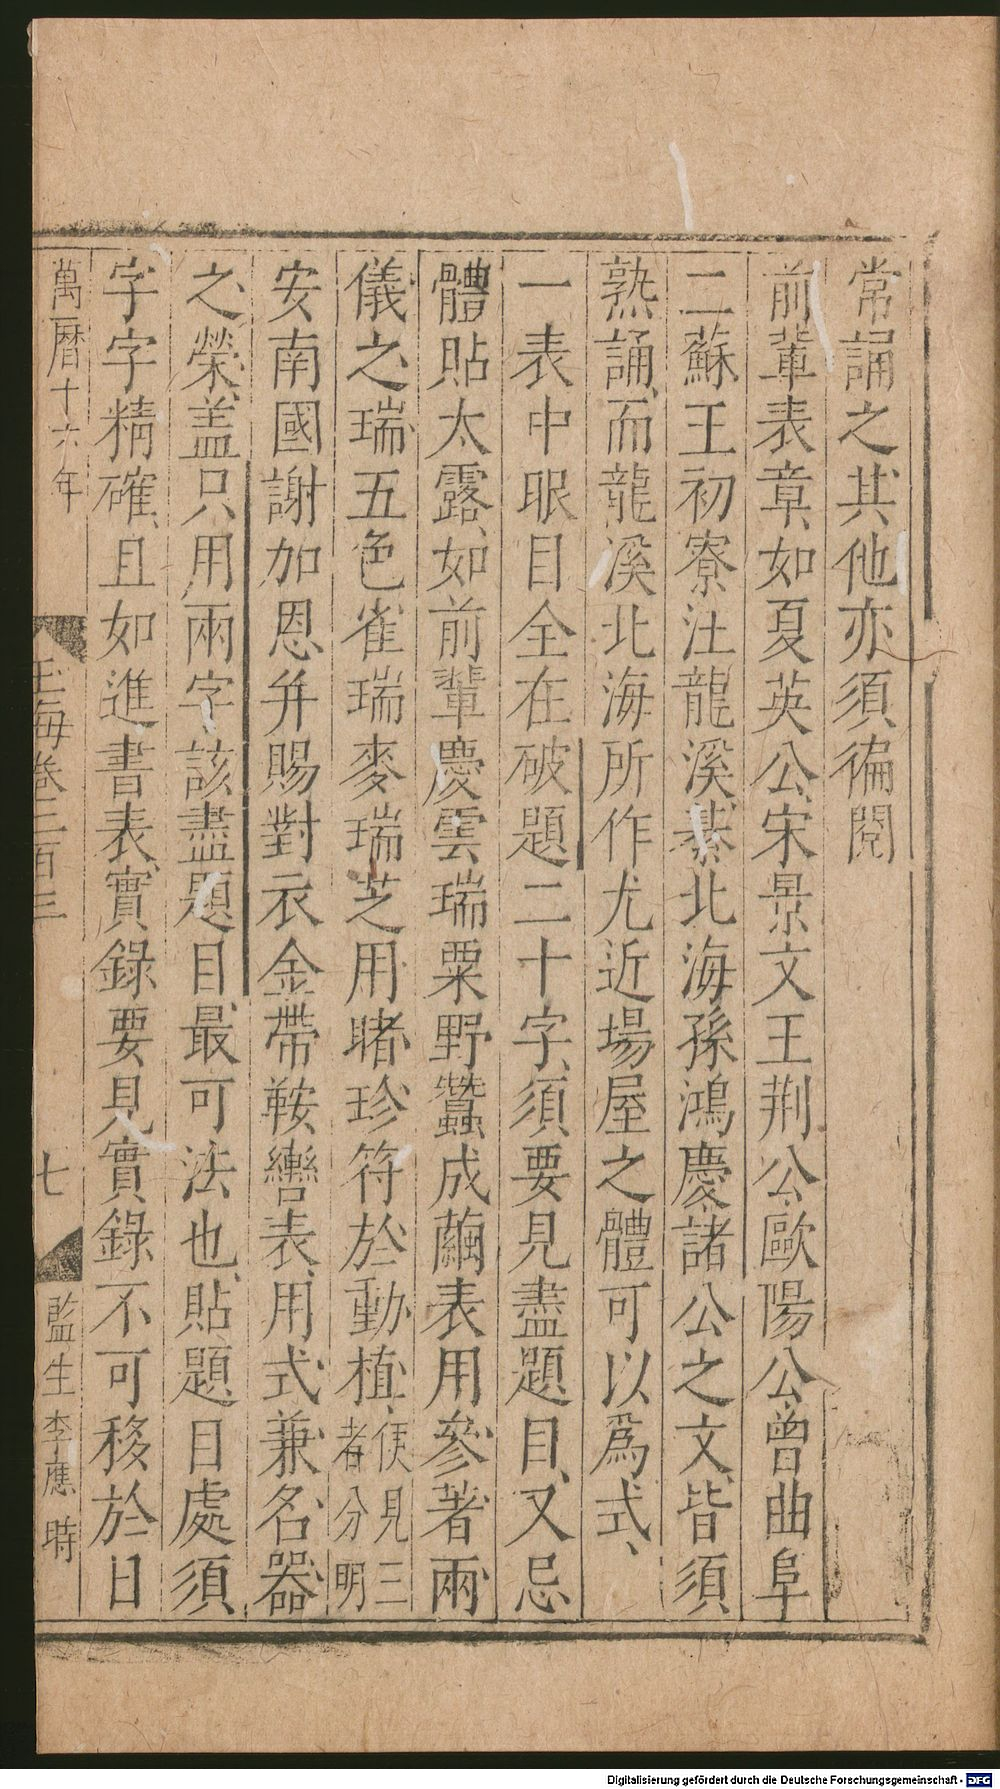 常誦之其他亦須徧閱
前輩表章如夏英公宋景文王荆公歐陽公曾曲阜
二蘇王初寮汪龍溪綦北海孫鴻慶諸公之文皆須
熟誦而龍溪北海所作尤近場屋之體可以爲式
一表中眼目全在破題二十字須要見盡題目又忌
體貼太露如前輩慶雲瑞粟野蠶成繭表用參著兩
儀之瑞五色雀瑞麥瑞芝用睹珍符於動植便見三者分明
安南國謝加恩并賜對衣金帶鞍轡表用式兼名器
之榮盖只用兩字該盡題目最可法也貼題目處須
字字精確且如進書表實錄要見實錄不可移於日
萬曆十六年
玉海卷二百三
七
監生李應時
Digitalisierung gefördert durch die Deutsche Forschungsgemeinschaft - DFG